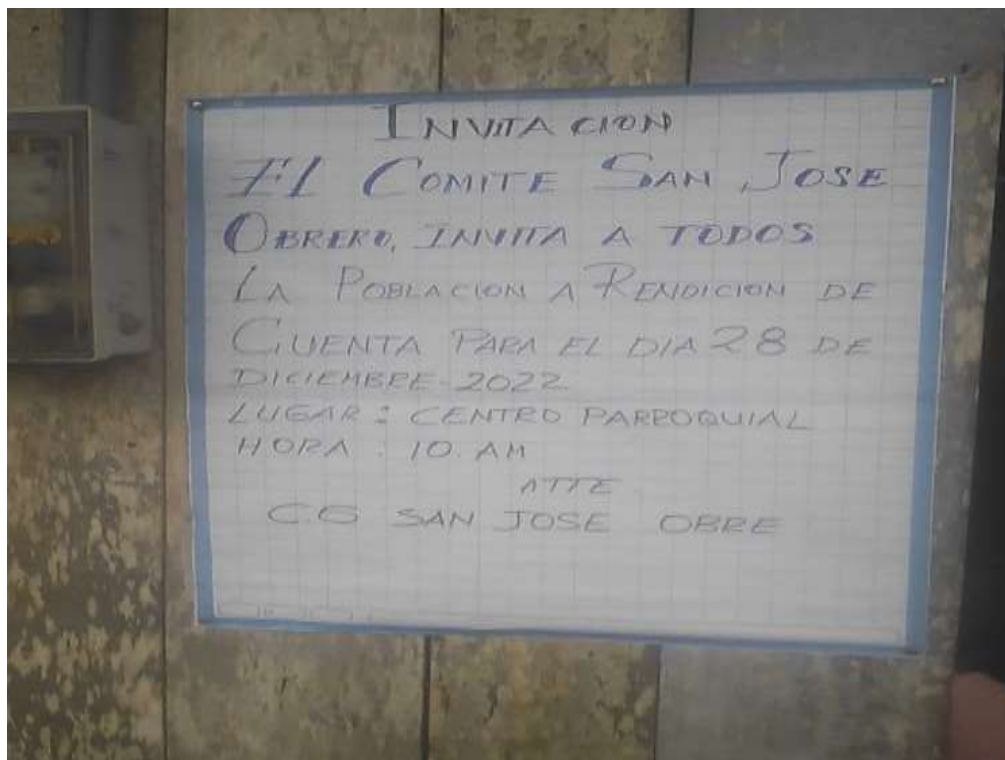 INVITACION
El COMITE SAN JOSE
OBRERO, INVITA A TODOS
LA POBLACION A RENDICION DE
CUENTA PARA EL DIA 28 DE
DICIEMBRE-2022
LUGAR: CENTRO PARROQUIAL
HORA: 10. AM
ATTE
CG SAN JOSE OBRE